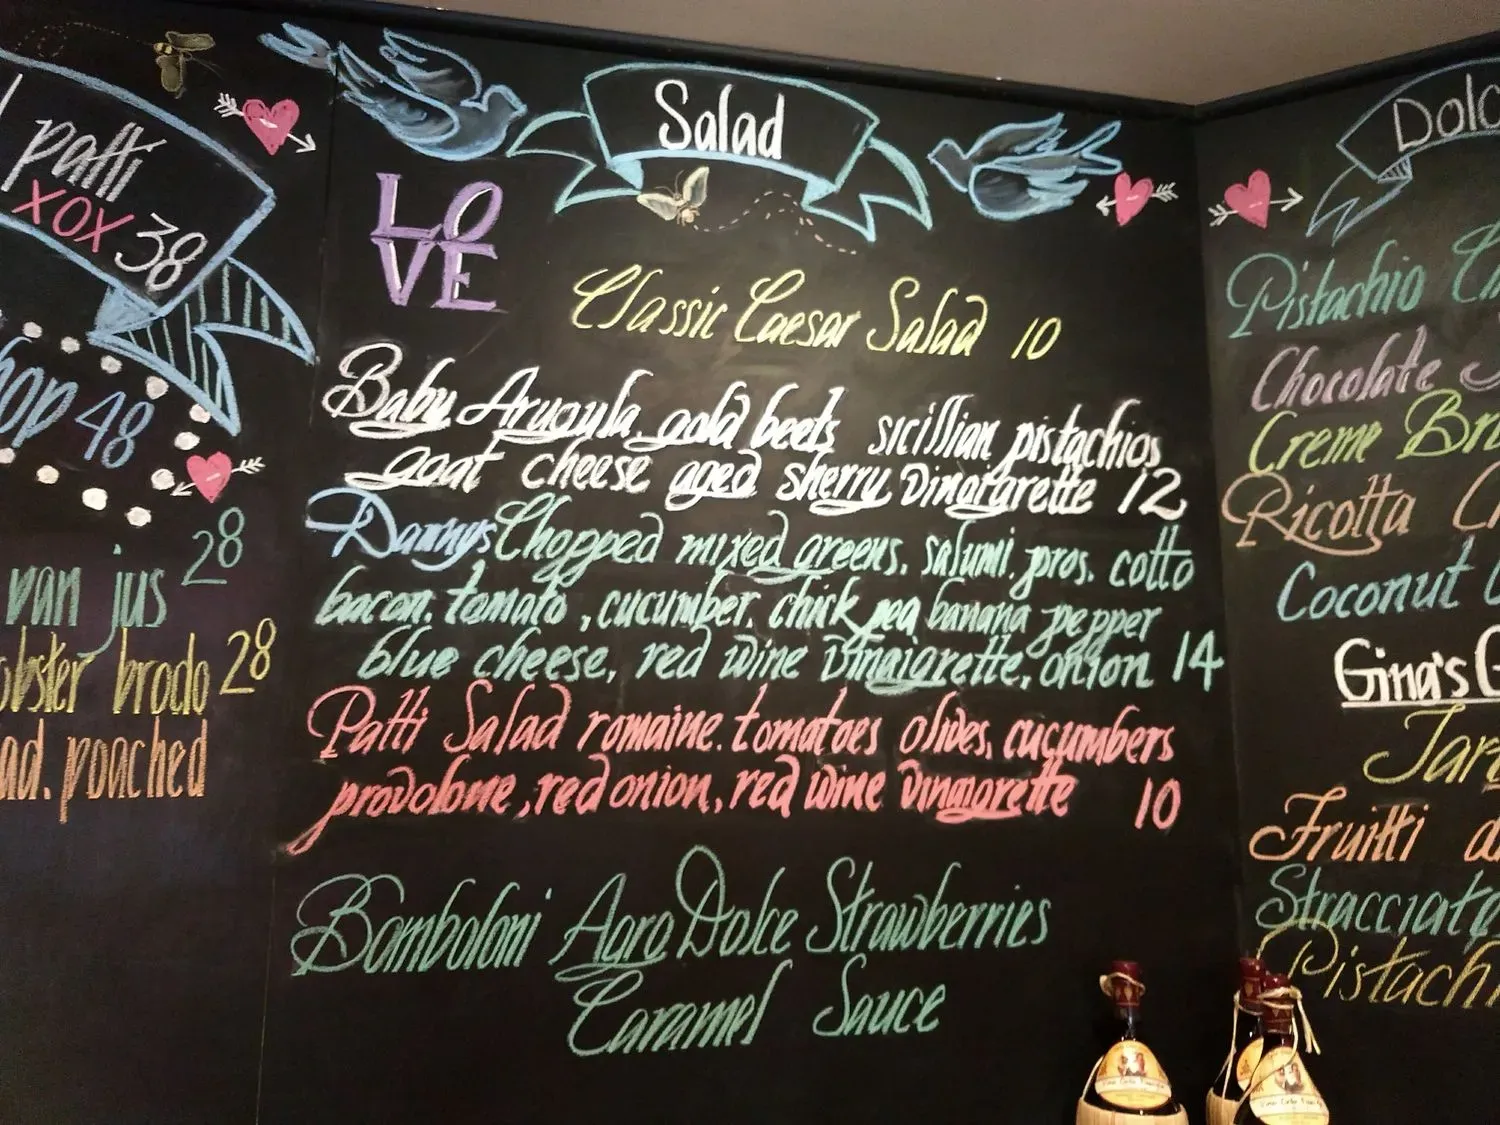 patti
XOX 38
48
28
van jus
brodo 28
poached
Salad
LO
VE
Classic Caesar Salad 10
Baby Arugula gold beets sicillian pistachios
goat cheese aged sherry Vinaiarette 12
Dannys Chopped mixed greens. salumi. pros. cotto
bacon. tomato, cucumber. chick pea banana pepper
blue cheese, red wine Vinaigrette, onion 14
Patti Salad romaine. tomatoes olives, cucumbers
provolone, red onion, red wine Vinaigrette 10
Bomboloni Agro Dolce Strawberries
Caramel Sauce
Pistachio
Chocolate
Creme
Ricotta
Coconut
Gina's
Fruitti